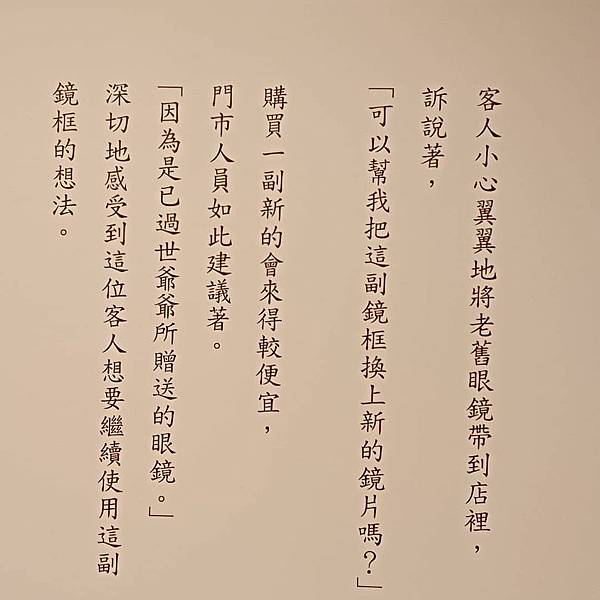 客人小心翼翼地將老舊眼鏡帶到店裡，
訴說著，
「可以幫我把這副鏡框換上新的鏡片嗎？」
購買一副新的會來得較便宜，
門市人員如此建議著。
「因為是已過世爺爺所贈送的眼鏡。」
深切地感受到這位客人想要繼續使用這副
鏡框的想法。